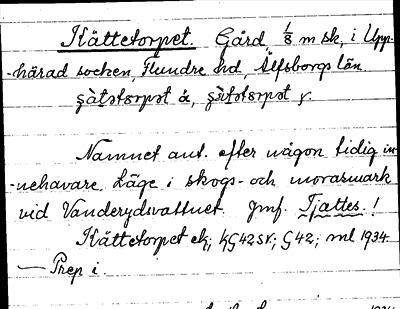 Kättetorpet. Gård, 1/8 m sk, i Upp-
-härad socken, Flundre hd, Älfsborgs län.
Namnet ant. efter någon tidig in-
-nehavare. Läge i skogs- och morasmark
vid Vanderydsvattnet. Jmf. Tjattes. !
Kättetorpet ek; G 42; ml 1934.
— Prep i.